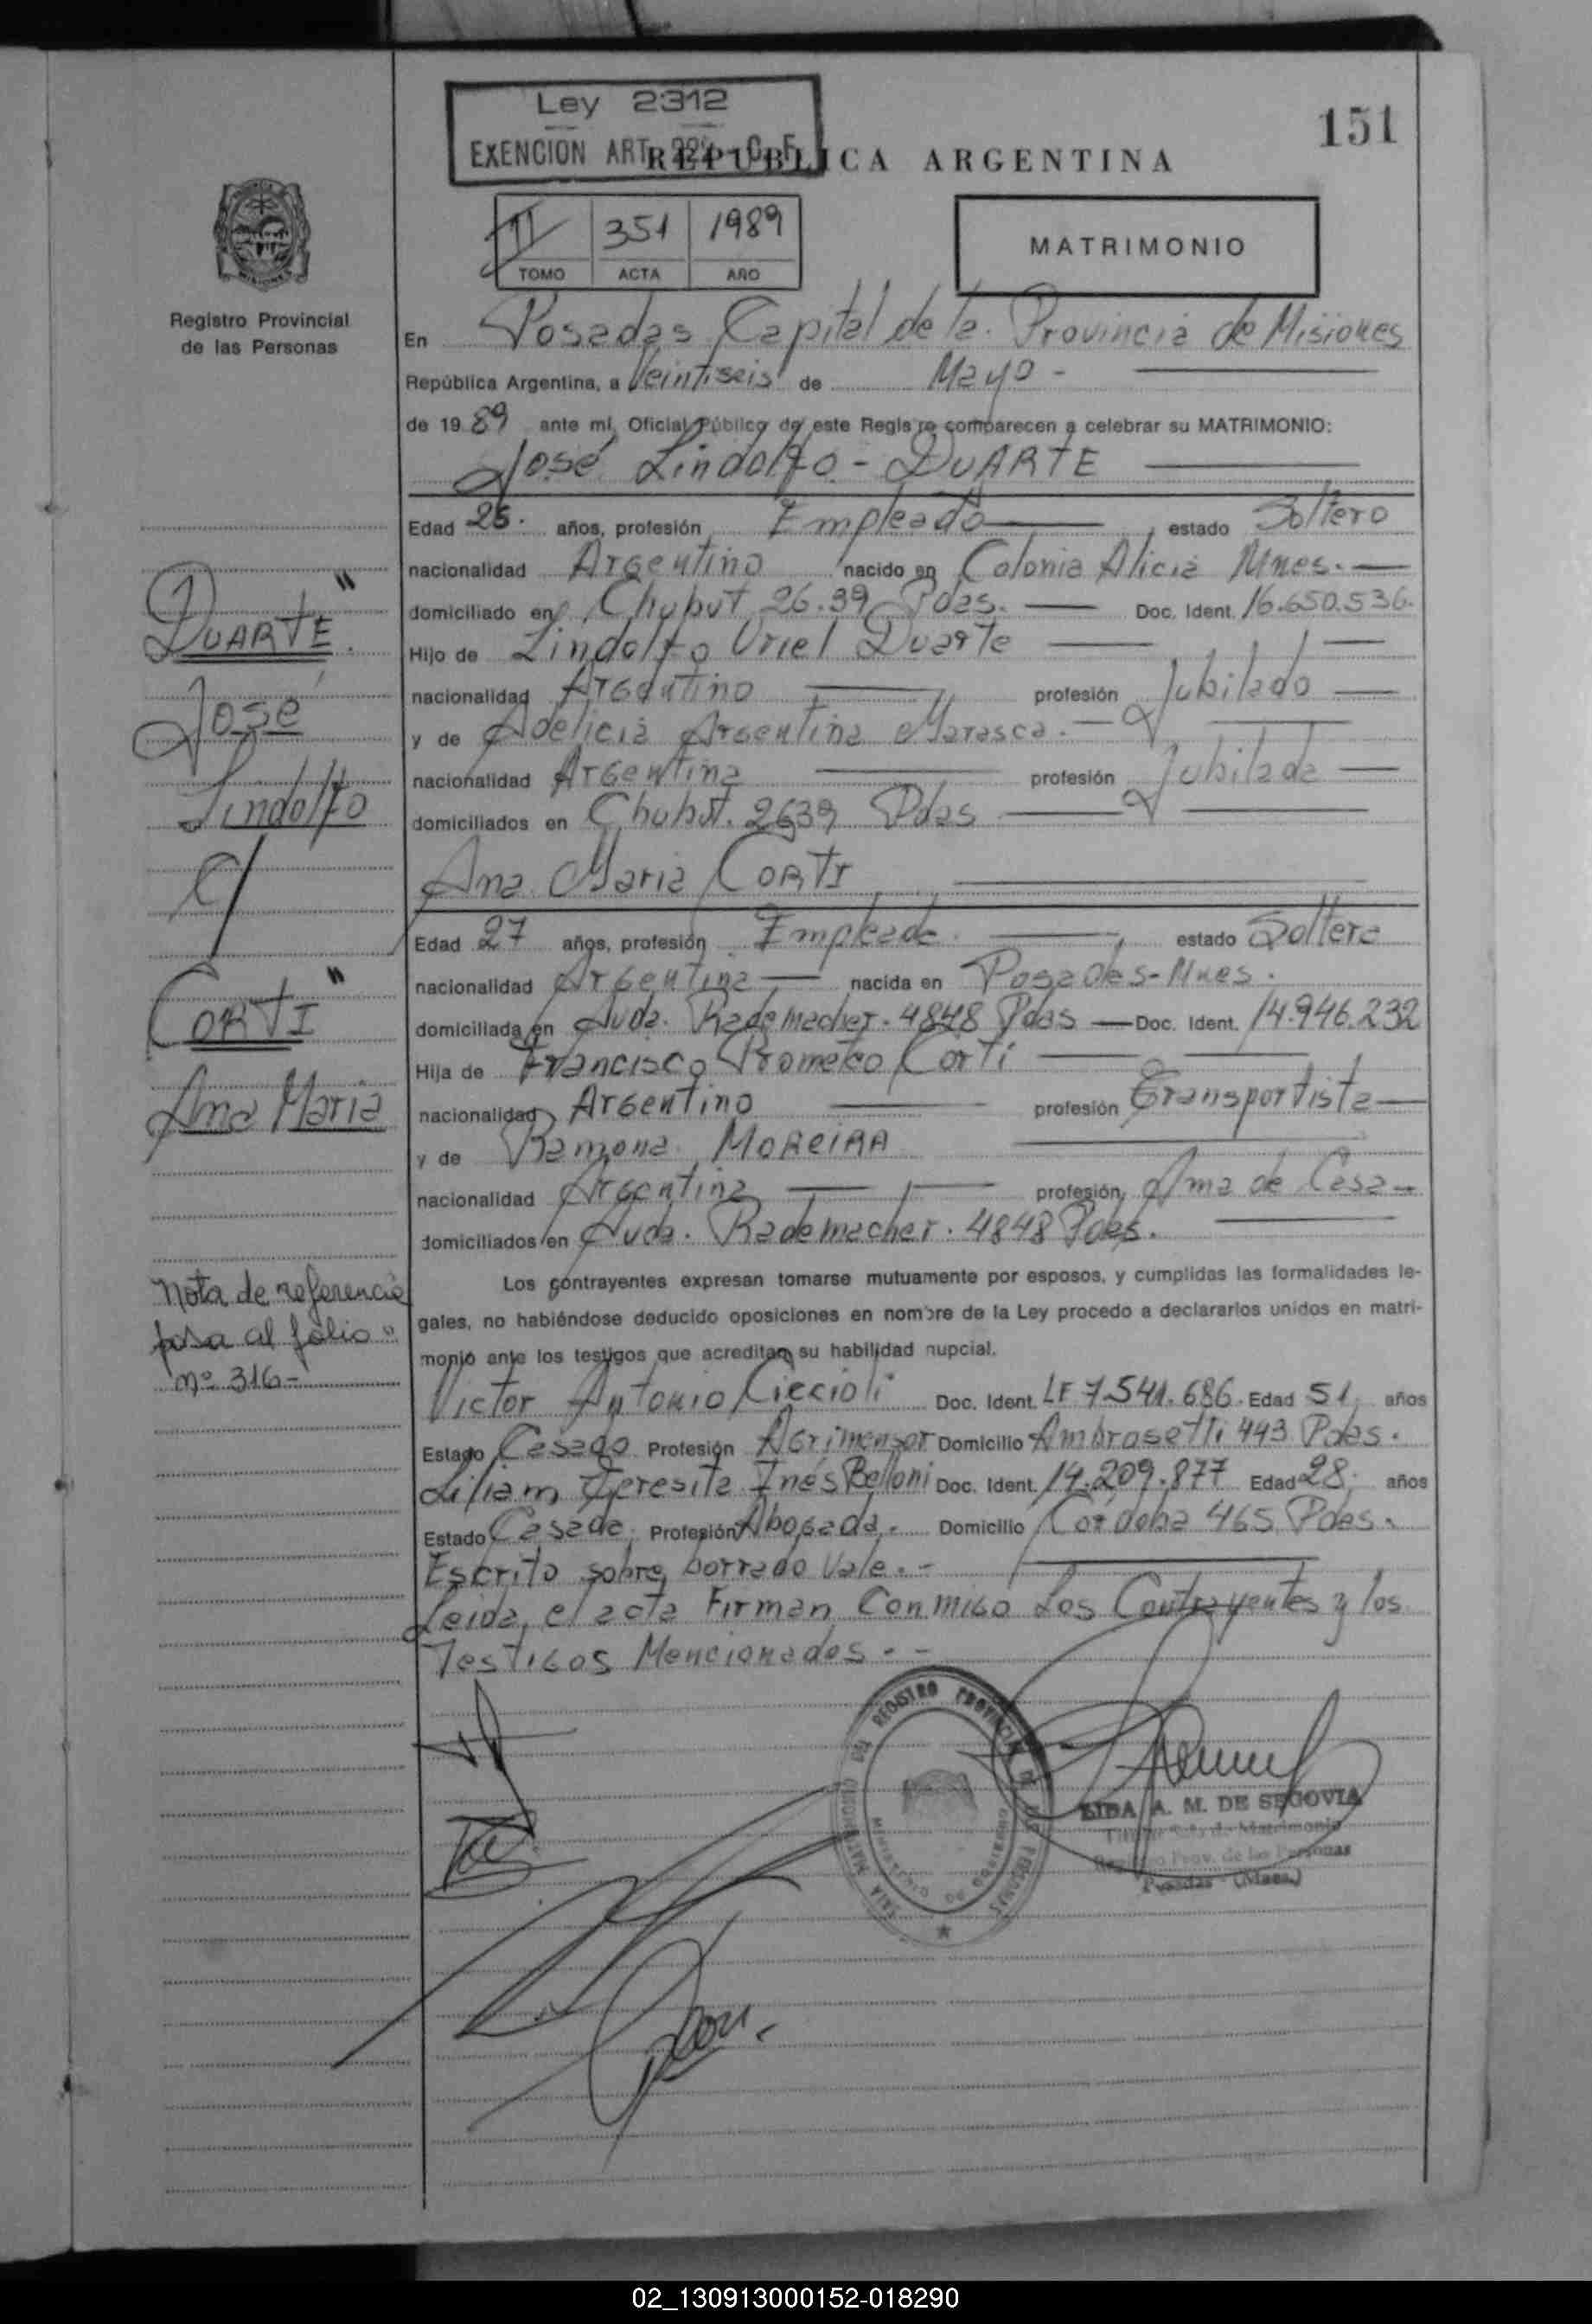 Ley 2312
EXENCION ART. 222 - C. F.
REPUBLICA ARGENTINA
151
II 351 1989
TOMO ACTA AÑO
MATRIMONIO
Registro Provincial
de las Personas
En Posadas Capital de la Provincia de Misiones
República Argentina, a Veintiseis de Mayo -
de 1989 ante mi, Oficial Público de este Registro comparecen a celebrar su MATRIMONIO:
José Lindolfo - DUARTE
Edad 25. años, profesión Empleado estado Soltero
nacionalidad Argentino nacido en Colonia Alicia Mnes.
domiciliado en Chubut 26.39 Pdas. Doc. Ident. 16.650.536.
Hijo de Lindolfo Uriel Duarte
nacionalidad Argentino profesión Jubilado
y de Adelicia Argentina Marasca.
nacionalidad Argentina profesión Jubilada
domiciliados en Chubut. 2639 Pdas
Ana Maria CORTI
Edad 27 años, profesión Empleada estado Soltera
nacionalidad Argentina nacida en Posadas-Mnes.
domiciliada en Avda. Rademacher. 4848 Pdas Doc. Ident. 14.946.232
Hija de Francisco Prometeo Corti
nacionalidad Argentino profesión Transportista
y de Ramona MOREIRA
nacionalidad Argentina profesión Ama de Casa
domiciliados en Avda. Rademacher. 4848 Pdas.
Los contrayentes expresan tomarse mutuamente por esposos, y cumplidas las formalidades le-
gales, no habiéndose deducido oposiciones en nombre de la Ley procedo a declararlos unidos en matri-
monio ante los testigos que acreditan su habilidad nupcial.
Victor Antonio Ciccioli Doc. Ident. LF 7.541.686. Edad 51 años
Estado Casado Profesión Agrimensor Domicilio Ambrosetti 443 Pdas.
Liliam Teresita Inés Belloni Doc. Ident. 14.209.877 Edad 28. años
Estado Casada Profesión Abogada. Domicilio Córdoba 465 Pdas.
Escrito sobre borrado Vale. -
Leida el acta Firman Conmigo Los Contrayentes y los
Testigos Mencionados. -
DUARTE "
José
Lindolfo
c/
CORTI "
Ana Maria
Nota de referencia
pasa al folio "
nº 316-
REGISTRO PROVINCIAL DE LAS PERSONAS
MINISTERIO DE GOBIERNO
LIDA A. M. DE SEGOVIA
Titular Sala de Matrimonio
Registro Prov. de las Personas
Posadas - (Mnes.)
02_130913000152-018290